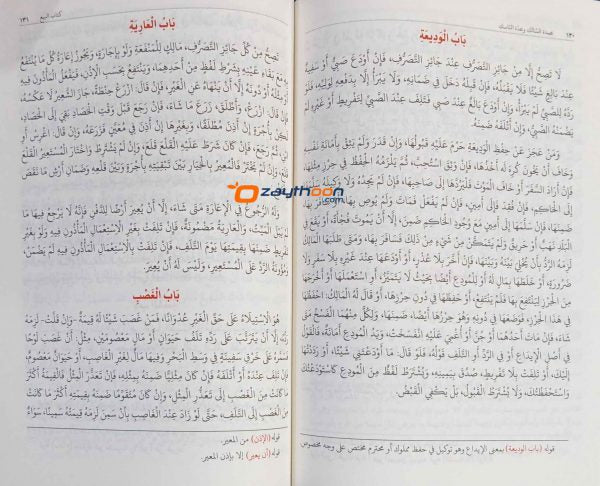 ١٣٠
عمدة السالك وعدة الناسك
بَابُ الْوَدِيعَةِ
لَا تَصِحُّ إِلَّا مِنْ جَائِزِ التَّصَرُّفِ عِنْدَ جَائِزِ التَّصَرُّفِ، فَإِنْ أَوْدَعَ صَبِيٌّ أَوْ سَفِيهٌ
عِنْدَ بَالِغٍ شَيْئًا فَلَا يَقْبَلُهُ، فَإِنْ قَبِلَهُ دَخَلَ فِي ضَمَانِهِ، وَلَا يَبْرَأُ إِلَّا بِدَفْعِهِ لِوَلِيِّهِ، فَلَوْ
رَدَّهُ لِلصَّبِيِّ لَمْ يَبْرَأْ، وَإِنْ أَوْدَعَ بَالِغٌ عِنْدَ صَبِيٍّ فَتَلِفَ عِنْدَ الصَّبِيِّ لِتَفْرِيطٍ أَوْ غَيْرِهِ لَمْ
يَضْمَنْهُ الصَّبِيُّ، وَإِنْ أَتْلَفَهُ ضَمِنَهُ.
وَمَنْ عَجَزَ عَنْ حِفْظِ الْوَدِيعَةِ حَرُمَ عَلَيْهِ قَبُولُهَا، وَإِنْ قَدَرَ وَلَمْ يَثِقْ بِأَمَانَةِ نَفْسِهِ
وَخَافَ أَنْ يَخُونَ كُرِهَ لَهُ أَخْذُهَا، فَإِنْ وَثِقَ اسْتُحِبَّ، ثُمَّ يَلْزَمُهُ الْحِفْظُ فِي حِرْزِ مِثْلِهَا،
فَإِنْ أَرَادَ السَّفَرَ أَوْ خَافَ الْمَوْتَ فَلْيَرُدَّهَا إِلَى صَاحِبِهَا، فَإِنْ لَمْ يَجِدْهُ وَلَا وَكِيلَهُ سَلَّمَهَا
إِلَى الْحَاكِمِ، فَإِنْ فُقِدَ فَإِلَى أَمِينٍ، فَإِنْ لَمْ يَفْعَلْ فَمَاتَ وَلَمْ يُوصِ بِهَا أَوْ سَافَرَ بِهَا
ضَمِنَهَا، فَإِنْ سَلَّمَهَا إِلَى أَمِينٍ مَعَ وُجُودِ الْحَاكِمِ ضَمِنَ، إِلَّا أَنْ يَمُوتَ فُجَاءَةً، أَوْ يَقَعَ فِي
الْبَلَدِ نَهْبٌ أَوْ حَرِيقٌ وَلَمْ يَتَمَكَّنْ مِنْ شَيْءٍ مِنْ ذَلِكَ فَسَافَرَ بِهَا، وَمَتَى طَلَبَهَا الْمَالِكُ
لَزِمَهُ الرَّدُّ بِأَنْ يُخَلِّيَ بَيْنَهُ وَبَيْنَهَا، فَإِنْ أَخَّرَ بِلَا عُذْرٍ، أَوْ أَوْدَعَهَا عِنْدَ غَيْرِهِ بِلَا سَفَرٍ وَلَا
ضَرُورَةٍ أَوْ خَلَطَهَا بِمَالٍ لَهُ أَوْ لِلْمُودِعِ أَيْضًا بِحَيْثُ لَا يَتَمَيَّزُ، أَوِ اسْتَعْمَلَهَا أَوْ أَخْرَجَهَا
مِنَ الْحِرْزِ لِيَنْتَفِعَ بِهَا فَلَمْ يَنْتَفِعْ، أَوْ حَفِظَهَا فِي دُونِ حِرْزِهَا، أَوْ قَالَ لَهُ الْمَالِكُ: احْفَظْهَا
فِي هَذَا الْحِرْزِ، فَوَضَعَهَا فِي دُونِهِ وَهُوَ حِرْزُهَا أَيْضًا، ضَمِنَهَا، وَلِكُلٍّ مِنْهُمَا الْفَسْخُ مَتَى
شَاءَ، فَإِنْ مَاتَ أَحَدُهُمَا أَوْ جُنَّ أَوْ أُغْمِيَ عَلَيْهِ انْفَسَخَتْ، وَيَدُ الْمُودَعِ أَمَانَةٌ، فَالْقَوْلُ
فِي أَصْلِ الْإِيدَاعِ أَوْ فِي الرَّدِّ أَوِ التَّلَفِ قَوْلُهُ، فَلَوْ قَالَ: مَا أَوْدَعْتَنِي شَيْئًا، أَوْ رَدَدْتُهَا
إِلَيْكَ، أَوْ تَلِفَتْ بِلَا تَفْرِيطٍ، صُدِّقَ بِيَمِينِهِ، وَيُشْتَرَطُ لَفْظٌ مِنَ الْمُودِعِ كَاسْتَوْدَعْتُكَ
وَاسْتَحْفَظْتُكَ، وَلَا يُشْتَرَطُ الْقَبُولُ، بَلْ يَكْفِي الْقَبْضُ.
قوله (باب الوديعة) بمعنى الإيداع وهو توكيل في حفظ مملوك أو محترم مختص على وجه مخصوص
كتاب البيع
١٣١
بَابُ الْعَارِيَةِ
تَصِحُّ مِنْ كُلِّ جَائِزِ التَّصَرُّفِ، مَالِكٍ لِلْمَنْفَعَةِ وَلَوْ بِإِجَارَةٍ، وَيَجُوزُ إِعَارَةُ كُلِّ مَا يُنْتَفَعُ
بِهِ مَعَ بَقَاءِ عَيْنِهِ بِشَرْطِ لَفْظٍ مِنْ أَحَدِهِمَا، وَيَنْتَفِعُ بِحَسَبِ الْإِذْنِ، فَيَفْعَلُ الْمَأْذُونَ فِيهِ
أَوْ مِثْلَهُ أَوْ دُونَهُ إِلَّا أَنْ يَنْهَاهُ عَنِ الْغَيْرِ، فَإِنْ قَالَ: ازْرَعْ حِنْطَةً، جَازَ الشَّعِيرُ لَا عَكْسُهُ،
فَإِنْ قَالَ: ازْرَعْ، وَأَطْلَقَ، زَرَعَ مَا شَاءَ، فَإِنْ رَجَعَ قَبْلَ وَقْتِ الْحَصَادِ بَقِيَ إِلَى الْحَصَادِ،
لَكِنْ بِأُجْرَةٍ إِنْ أَذِنَ مُطْلَقًا، وَبِغَيْرِهَا إِنْ أَذِنَ فِي مُعَيَّنٍ فَزَرَعَهُ، وَإِنْ قَالَ: اغْرِسْ أَوِ
ابْنِ، ثُمَّ رَجَعَ، فَإِنْ كَانَ شَرَطَ عَلَيْهِ الْقَلْعَ قَلَعَ، وَإِنْ لَمْ يَشْتَرِطْ وَاخْتَارَ الْمُسْتَعِيرُ الْقَلْعَ
قَلَعَ، وَإِنْ لَمْ يَخْتَرْ فَالْمُعِيرُ بِالْخِيَارِ بَيْنَ تَبْقِيَتِهِ بِأُجْرَةٍ وَبَيْنَ قَلْعِهِ وَضَمَانِ أَرْشِ مَا نَقَصَ
وَلَهُ الرُّجُوعُ فِي الْإِعَارَةِ مَتَى شَاءَ، إِلَّا أَنْ يُعِيرَ أَرْضًا لِلدَّفْنِ فَإِنَّهُ لَا يَرْجِعُ فِيهَا مَا
لَمْ يَبْلَ الْمَيِّتُ، وَالْعَارِيَةُ مَضْمُونَةٌ، فَإِنْ تَلِفَتْ بِغَيْرِ الِاسْتِعْمَالِ الْمَأْذُونِ فِيهِ وَلَوْ بِغَيْرِ
تَفْرِيطٍ ضَمِنَهَا بِقِيمَتِهَا يَوْمَ التَّلَفِ، فَإِنْ تَلِفَتْ بِالِاسْتِعْمَالِ الْمَأْذُونِ فِيهِ لَمْ يَضْمَنْ،
وَمُؤْنَةُ الرَّدِّ عَلَى الْمُسْتَعِيرِ، وَلَيْسَ لَهُ أَنْ يُعِيرَ.
بَابُ الْغَصْبِ
هُوَ الِاسْتِيلَاءُ عَلَى حَقِّ الْغَيْرِ عُدْوَانًا، فَمَنْ غَصَبَ شَيْئًا لَهُ قِيمَةٌ -وَإِنْ قَلَّتْ- لَزِمَهُ
رَدُّهُ إِلَّا أَنْ يَتَرَتَّبَ عَلَى رَدِّهِ تَلَفُ حَيَوَانٍ أَوْ مَالٍ مَعْصُومَيْنِ، مِثْلُ: أَنْ غَصَبَ لَوْحًا
فَسَمَّرَهُ عَلَى خَرْقِ سَفِينَةٍ فِي وَسَطِ الْبَحْرِ وَفِيهَا مَالٌ لِغَيْرِ الْغَاصِبِ، أَوْ حَيَوَانٌ مَعْصُومٌ،
فَإِنْ تَلِفَ عِنْدَهُ أَوْ أَتْلَفَهُ فَإِنْ كَانَ مِثْلِيًّا ضَمِنَهُ بِمِثْلِهِ، فَإِنْ تَعَذَّرَ الْمِثْلُ فَالْقِيمَةُ أَكْثَرَ
مَا كَانَتْ مِنَ الْغَصْبِ إِلَى تَعَذُّرِ الْمِثْلِ، وَإِنْ كَانَ مُتَقَوَّمًا ضَمِنَهُ بِقِيمَتِهِ أَكْثَرَ مَا كَانَتْ
مِنَ الْغَصْبِ إِلَى التَّلَفِ، حَتَّى لَوْ زَادَ عِنْدَ الْغَاصِبِ بِأَنْ سَمِنَ لَزِمَهُ قِيمَتُهُ سَمِينًا، سَوَاءٌ
قوله (الإذن) من المعير.
قوله (أن يعير) إلا بإذن المعير.
Ozaythoon
.com